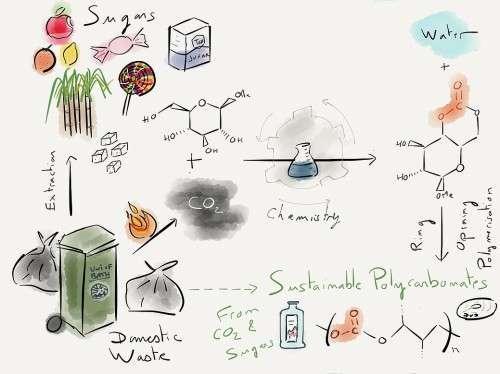 Sugars
Tea
SUGAR
Extraction
HO
HO
HO
OH
O
OMe
+
CO2
Chemistry
Water
+
O
O
O
HO
HO
O
OMe
Ring
Opining
Polymerisation
Uni of
BATH
Domestic
Waste
Sustainable Polycarbonates
From
CO2 &
Sugars
O
O
O
n